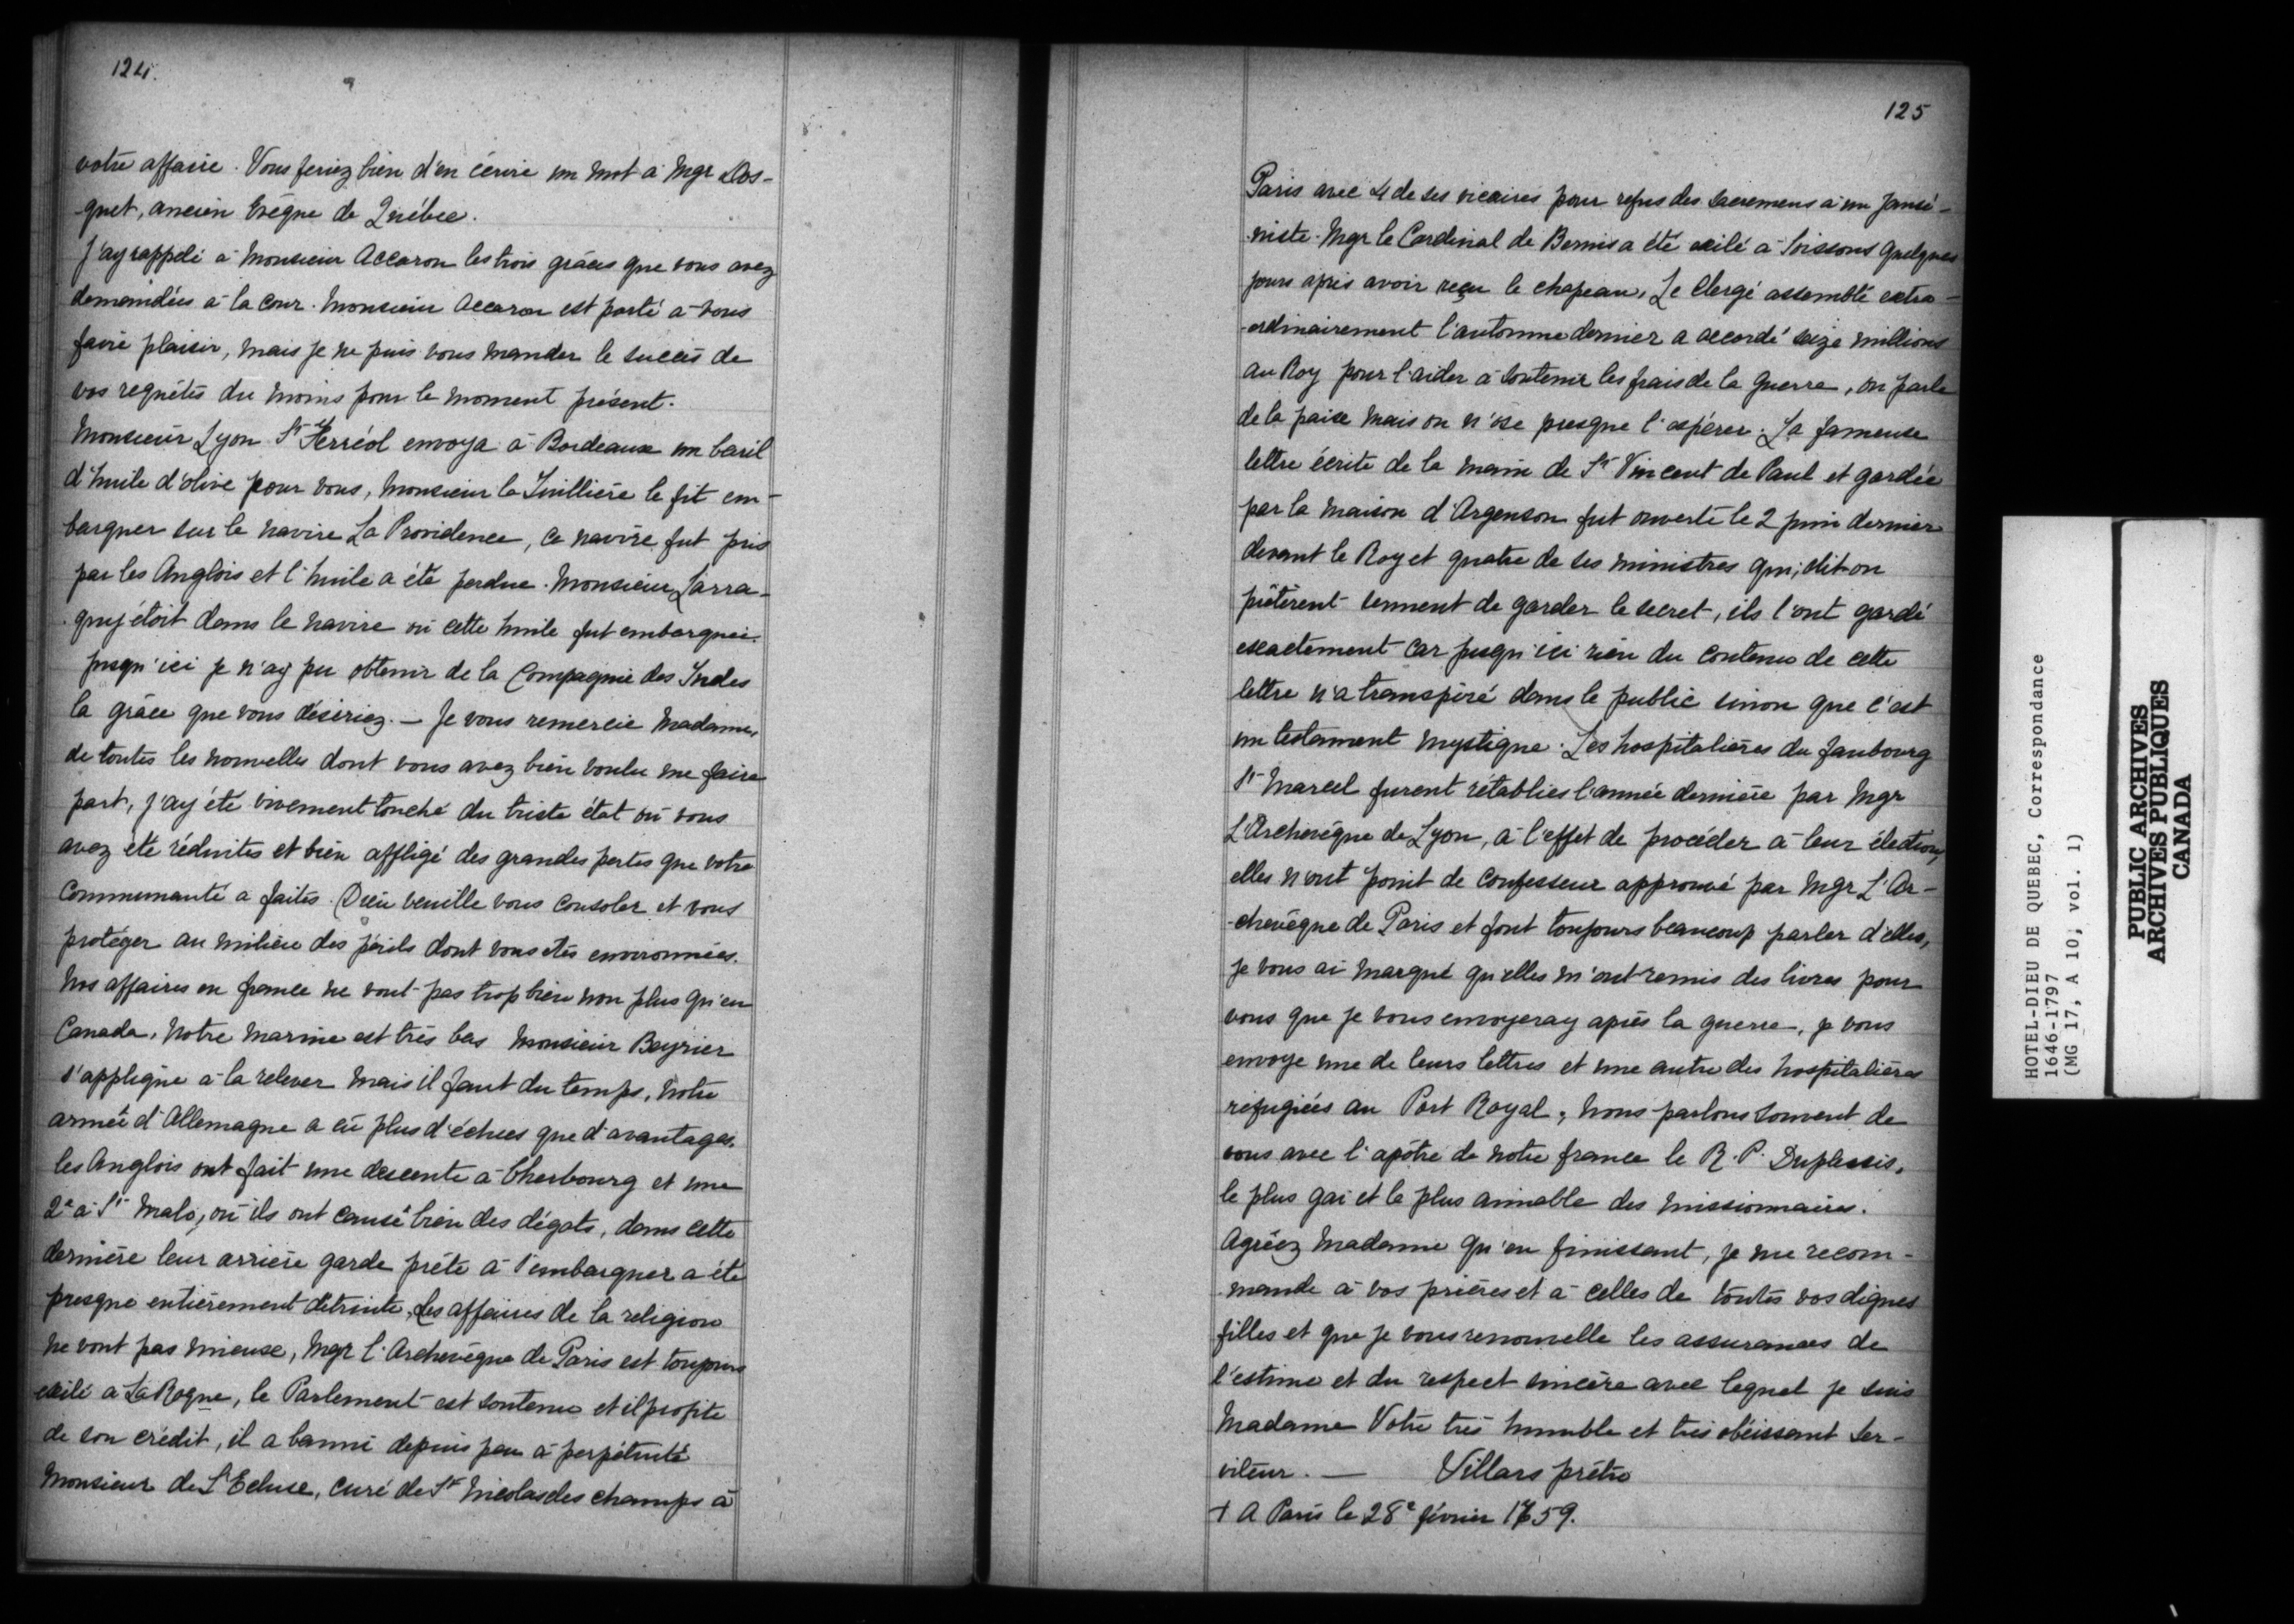 124.
votre affaire. Vous feriez bien d'en écrire un mot à Mgr Dos-
-quet, ancien Evêque de Québec.
J'ay rappelé à Monsieur Accaron les trois grâces que vous avez
demandées à la cour. Monsieur Accaron est porté à vous
faire plaisir, mais je ne puis vous mander le succès de
vos requêtes du moins pour le moment présent.
Monsieur Lyon St Ferréol envoya à Bordeaux un baril
d'huile d'olive pour vous, Monsieur la Tuillière le fit em-
barquer sur le navire La Providence, ce navire fut pris
par les Anglois et l'huile a été perdue. Monsieur Larra-
guy étoit dans le navire où cette huile fut embarquée.
jusqu'ici je n'ay pu obtenir de la Compagnie des Indes
la grâce que vous désiriez. — Je vous remercie Madame,
de toutes les nouvelles dont vous avez bien voulu me faire
part, j'ay été vivement touché du triste état où vous
avez été réduites et bien affligé des grandes pertes que votre
Communauté a faites. Dieu veuille vous consoler et vous
protéger au milieu des périls dont vous etes environnées.
Nos affaires en france ne vont pas trop bien non plus qu'en
Canada, notre marine est très bas Monsieur Beyrier
s'applique à la relever mais il faut du temps, notre
armée d'Allemagne a eû plus d'échecs que d'avantages.
les Anglois ont fait une descente à Cherbourg et une
2e à St Malo, où ils ont causé bien des dégats, dans cette
dernière leur arrière garde prête à s'embarquer a été
presque entièrement détruite, Les affaires de la religion
ne vont pas mieux, Mgr l'Archevêque de Paris est toujours
exilé à La Roque, le Parlement est soutenu et il profite
de son crédit, il a banni depuis peu à perpétuité
Monsieur de L'Ecluse, curé de St Nicolas des champs à
125
Paris avec 4 de ses vicaires pour refus des sacremens à un Jansé-
-niste. Mgr le Cardinal de Bernis a été exilé à Soissons quelques
jours après avoir reçu le chapeau, Le Clergé assemblé extra-
-ordinairement l'automne dernier a accordé seize millions
au Roy pour l'aider à soutenir les frais de la guerre, on parle
de la paix mais on n'ose presque l'espérer. La fameuse
lettre écrite de la main de St Vincent de Paul et gardée
par la maison d'Argenson fut ouverte le 2 juin dernier
devant le Roy et quatre de ses ministres qui, dit-on
prêtèrent serment de garder le secret, ils l'ont gardé
exactement car jusqu'ici rien du contenu de cette
lettre n'a transpiré dans le public sinon que c'est
un testament mystique. Les hospitalières du faubourg
St Marcel furent rétablies l'année dernière par Mgr
L'Archevêque de Lyon, à l'effet de procéder à leur élection,
elles n'ont point de confesseur approuvé par Mgr L'Ar-
-chevêque de Paris et font toujours beaucoup parler d'elles,
je vous ai marqué qu'elles m'ont remis des livres pour
vous que je vous envoyeray après la guerre, je vous
envoye une de leurs lettres et une autre des hospitalières
réfugiées au Port Royal, nous parlons souvent de
vous avec l'apôtre de notre france le R. P. Duplessis,
le plus gai et le plus aimable des missionnaires.
Agréez Madame qu'en finissant, je me recom-
mande à vos prières et à celles de toutes vos dignes
filles et que je vous renouvelle les assurances de
l'estime et du respect sincère avec lequel je suis
Madame Votre très humble et très obéissant ser-
viteur. — Villars prêtre
+ A Paris le 28e février 1759.
HOTEL-DIEU DE QUEBEC, Correspondance
1646-1797
(MG 17, A 10, vol. 1)
PUBLIC ARCHIVES
ARCHIVES PUBLIQUES
CANADA